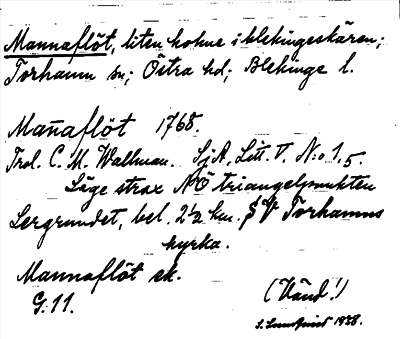 Mannaflöt, liten holme i blekingeskären;
Torhamn sn; Östra hd; Blekinge l.
Man̄aflöt 1768.
Trol. C. M. Wallman. SjA, Litt. V. N:o 1,5.
Läge strax NÖ triangelpunkten
Lergrundet, bel. 2½ km. SV Torhamns
kyrka.
Mannaflöt sk.
G. 11.
(Vänd!)
1938.